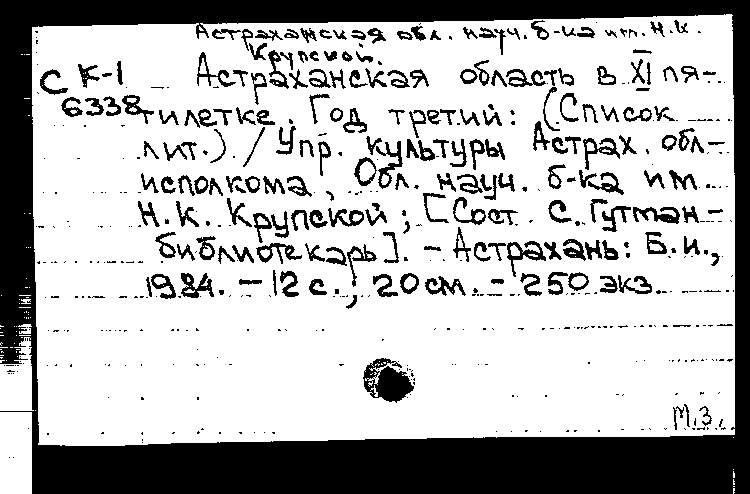 Астраханская обл. науч. б-ка им. Н.К.
Крупской.
С К-1
6338
Астраханская область в XI пя-
тилетке. Год третий: (Список
лит.) / Упр. культуры Астрах. обл-
исполкома, Обл. науч. б-ка им.
Н.К. Крупской; [Сост. С. Гутман-
библиотекарь]. - Астрахань: Б.и.,
1984. - 12 с.; 20 см. - 250 экз.
М.З.